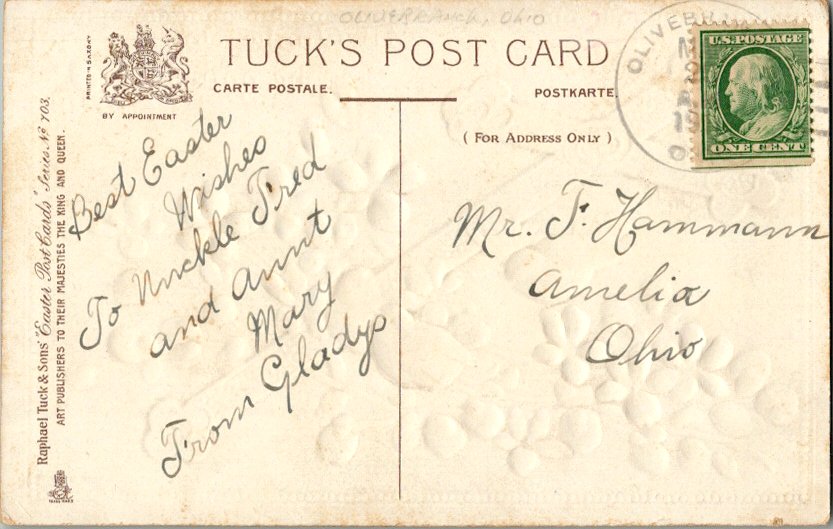 OLIVEBRANCH, OHIO
TUCK'S POST CARD
CARTE POSTALE.
POSTKARTE.
( FOR ADDRESS ONLY )
PRINTED IN SAXONY
BY APPOINTMENT
Raphael Tuck & Sons' "Easter Post Cards" Series No 703.
ART PUBLISHERS TO THEIR MAJESTIES THE KING AND QUEEN.
OLIVEB
M
2
A
19
O
U.S. POSTAGE
ONE CENT
Best Easter
Wishes
To Unckle Fred
and Aunt
Mary
From Gladys
Mr. F. Hammann
Amelia
Ohio